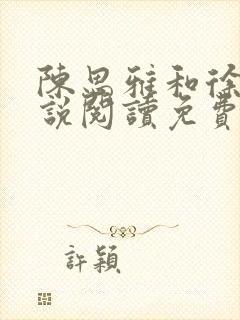 陳思雅和徐
說閱讀免費
許穎